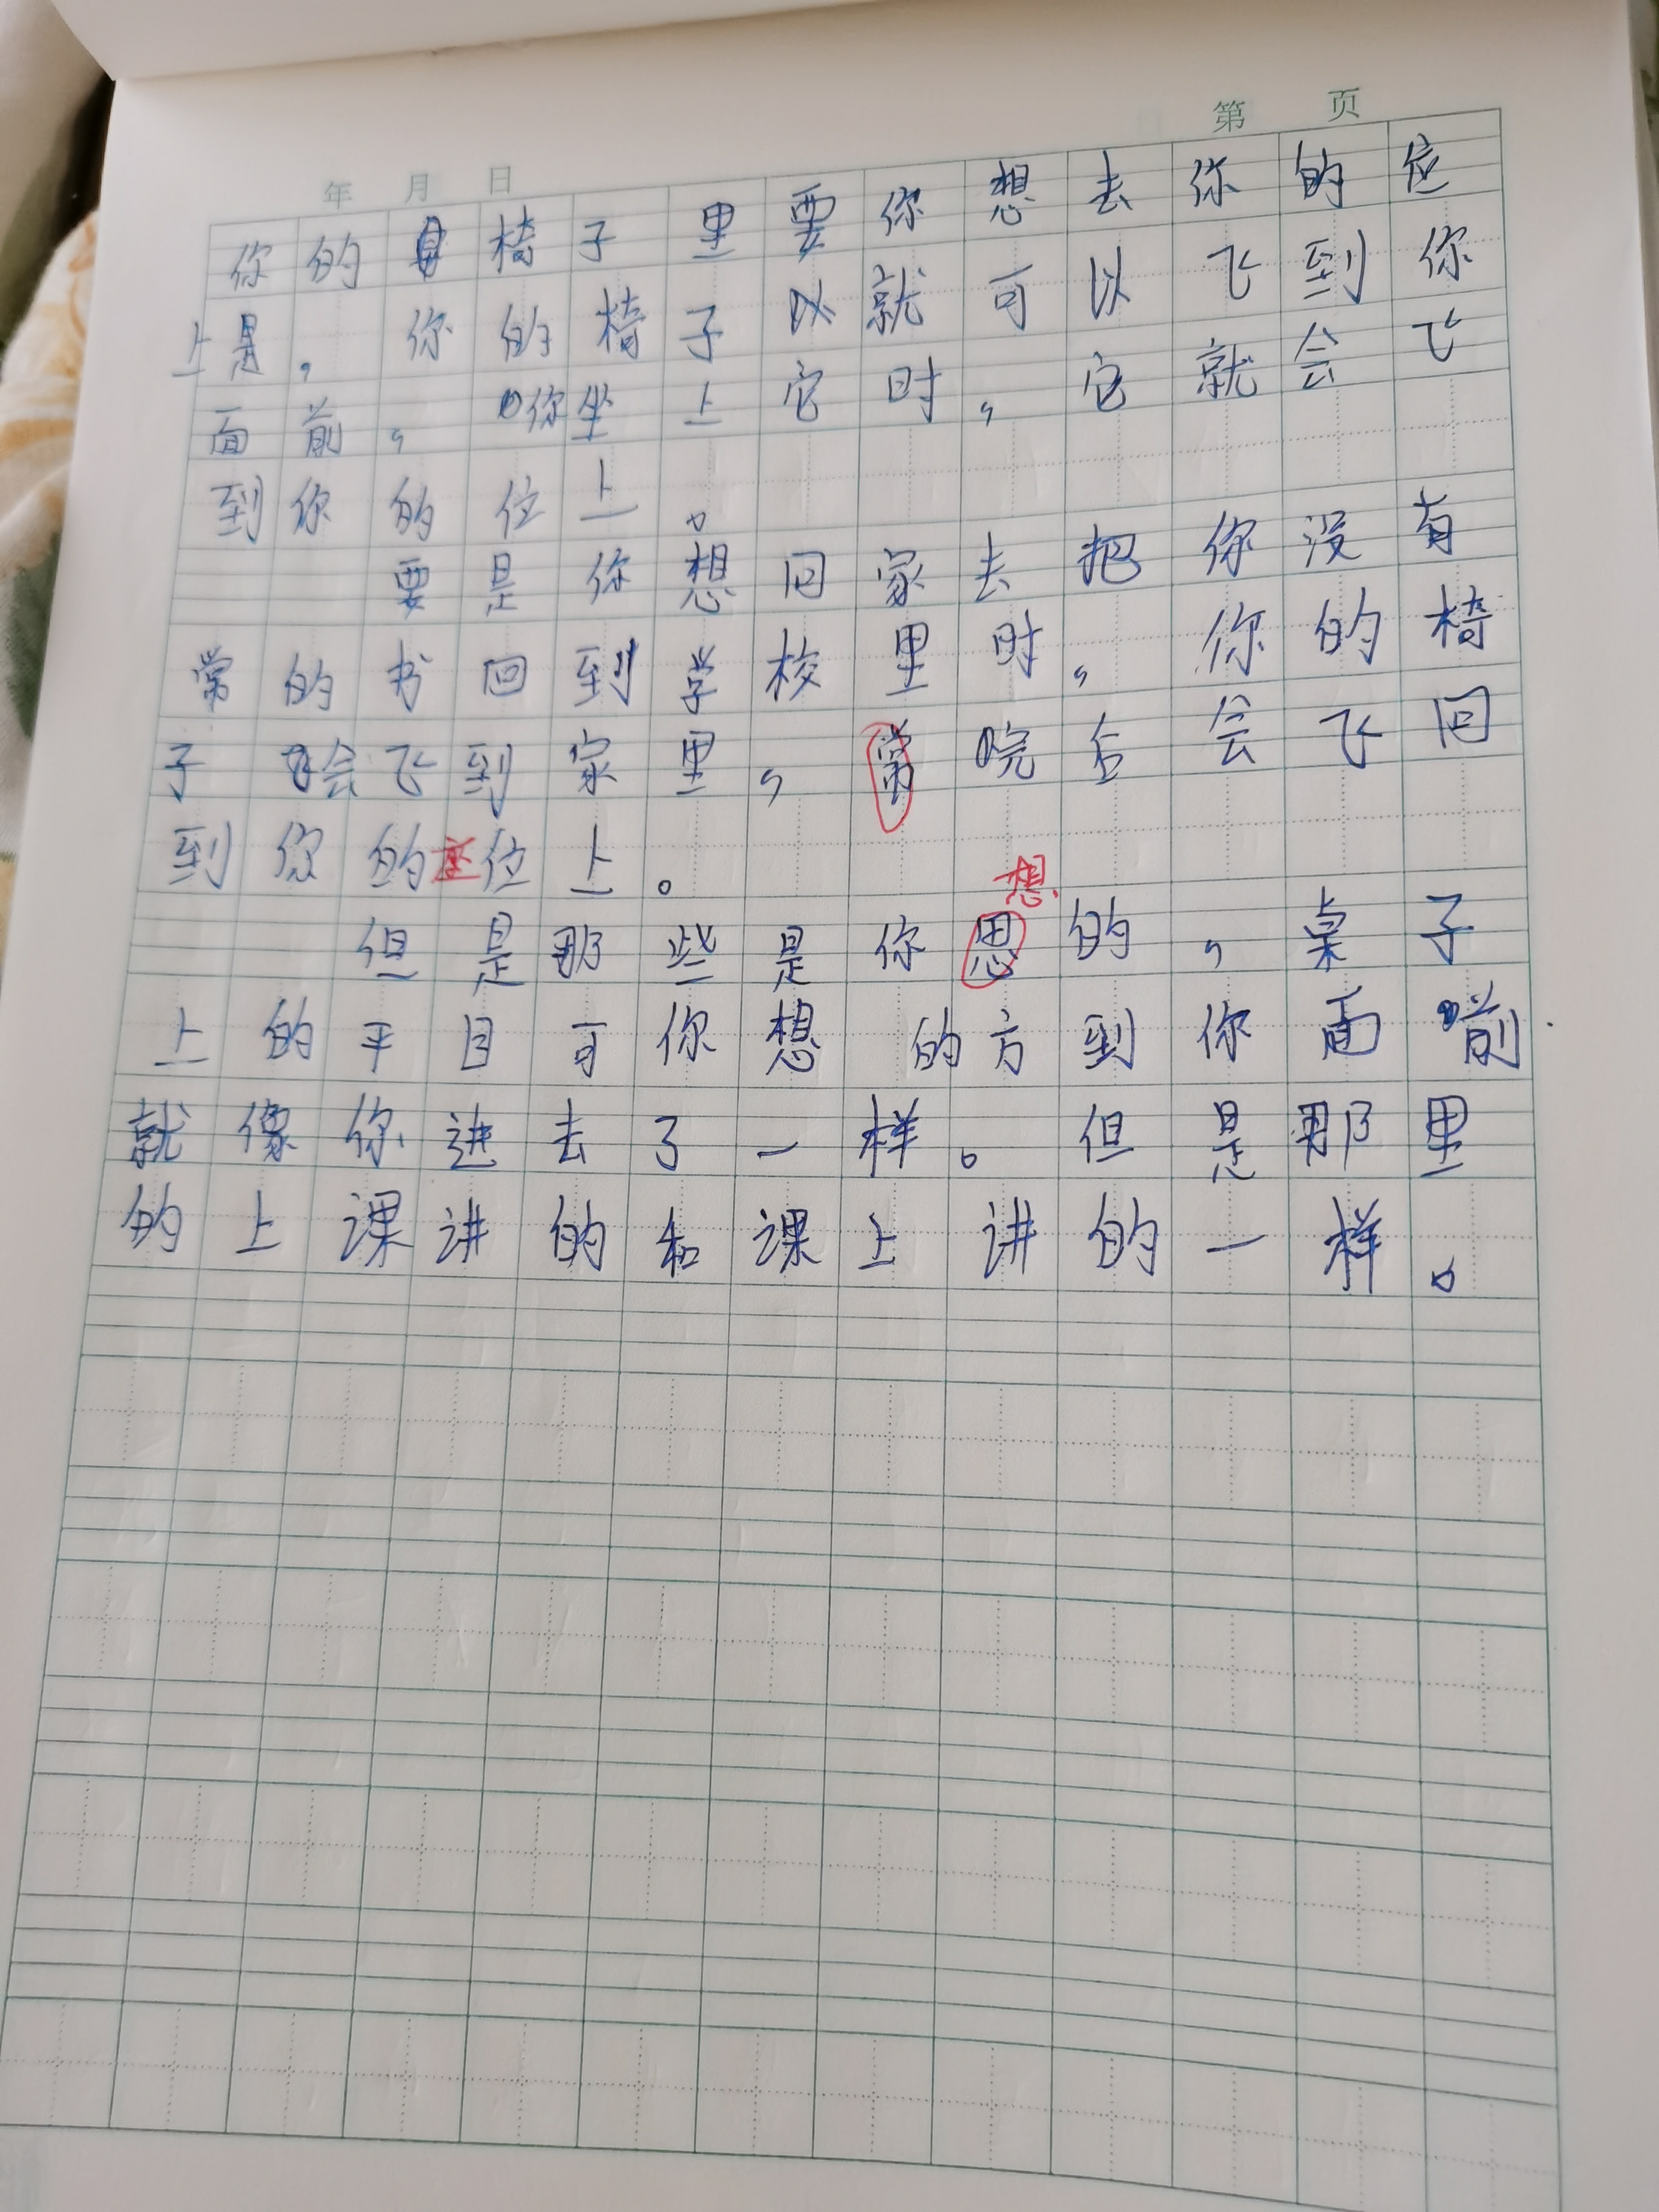 第 页
年 月 日
你的椅子里要你想去你的位
上是，你的椅子以就可以飞到你
面前，你坐上它时，它就会飞
到你的位上。
要是你想回家去把你没有
常的书回到学校里时，你的椅
子会飞到家里，常完后会飞回
到你的座位上。
想
但是那些是你思的，桌子
上的平目可你想的方到你面前
就像你进去了一样。但是那里
的上课讲的和课上讲的一样。